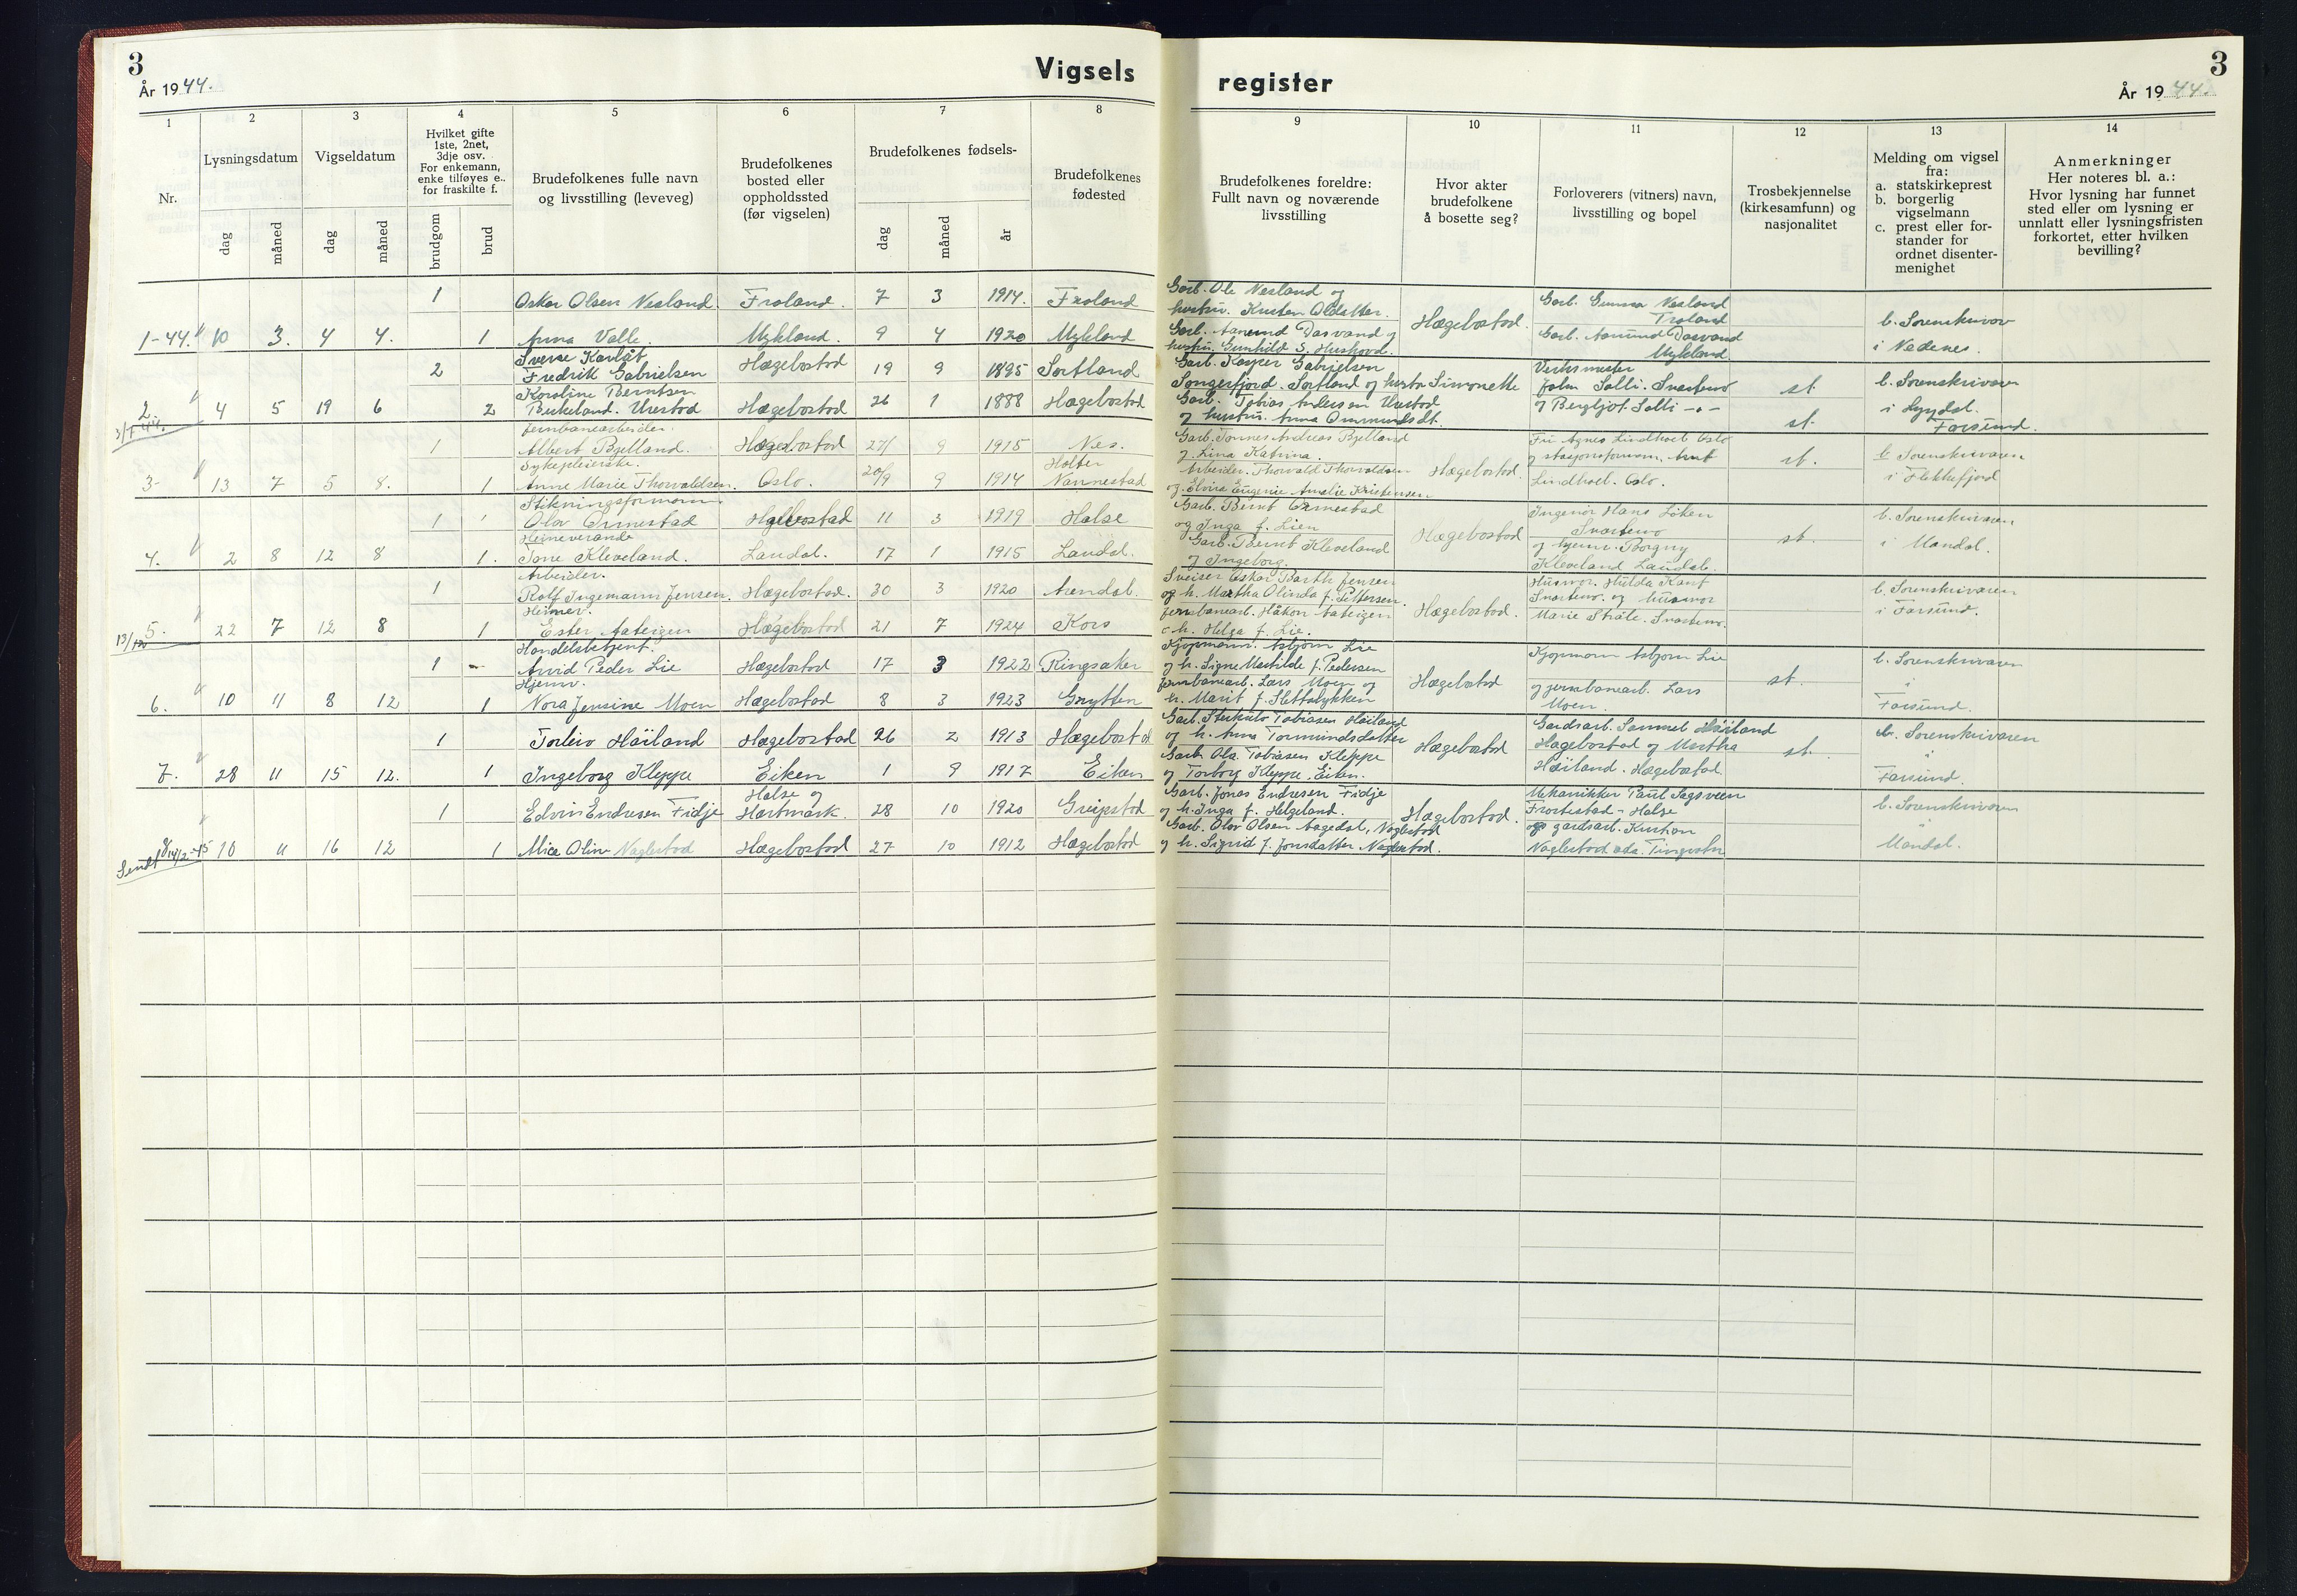 3
År 1944.
Vigsels
register
3
År 1944.
1
2
3
4
5
6
7
8
9
10
11
12
13
14
Nr.
Lysningsdatum
dag
måned
Vigseldatum
dag
måned
Hvilket gifte
1ste, 2net,
3dje osv.
For enkemann,
enke tilføyes e..
for fraskilte f.
brudgom
brud
Brudefolkenes fulle navn
og livsstilling (leveveg)
Brudefolkenes
bosted eller
oppholdssted
(før vigselen)
Brudefolkenes fødsels-
dag
måned
år
Brudefolkenes
fødested
Brudefolkenes foreldre:
Fullt navn og noværende
livsstilling
Hvor akter
brudefolkene
å bosette seg?
Forloverers (vitners) navn,
livsstilling og bopel
Trosbekjennelse
(kirkesamfunn) og
nasjonalitet
Melding om vigsel
fra:
a. statskirkeprest
b. borgerlig
vigselmann
c. prest eller for-
stander for
ordnet disenter-
menighet
Anmerkninger
Her noteres bl. a.:
Hvor lysning har funnet
sted eller om lysning er
unnlatt eller lysningsfristen
forkortet, etter hvilken
bevilling?
1 Oskar Olsen Nesland. Froland. 7 3 1914. Froland
Garb. Ole Nesland og
hustru. Kirsten Oldsdtter.
1-44. 10 3. 4 4. 1 Anna Valle. Mykland. 9 4 1920 Mykland
Garb. Aanund Dasvand og
hustru. Gunhild S. Huskovd.
Hægebostad.
Garb. Gunnar Nesland
Froland
Garb. Aanund Dasvand
Mykland
b. Sorenskriver
i Nedenes.
Sverre Karlåt
2 Fredrik Gabrielsen Hægebostad 19 9 1895 Sortland
Garb. Kasper Gabrielsen
Songefjord. Sortland og hustru Simonette
Karoline Berntsen
2. 4 5 19 6 2 Birkeland. Urestad Hægebostad 26 1 1888 Hægebostad
3/7 44.
Garb. Tobias Andersen Urestad
og hustru. Anna Ommundsdt.
Verksmester
John Salli. Snartemo
og Bergljot Salli -"-
st.
st.
b. Sorenskriveren
i Lyngdal.
Farsund.
Jernbanearbeider.
1 Albert Bjelland. Hægebostad 27/ 9 1915 Nes.
Garb. Tønnes Andreas Bjelland
og Lina Katrina.
Sykepleierske.
3- 13 7 5 8. 1 Anne Marie Thorvaldsen. Oslo. 20/9 9 1914 Holter
Nannestad
Arbeider. Thorvald Thorvaldsen
og Elvira Eugenie Amalie Kristensen
Hægebostad.
Fru Agnes Lindhoel Oslo
og stasjonsformann. Arnt
Lindhoel. Oslo.
st.
b Sorenskriveren
i Flekkefjord
Stikningsformann
1 Olav Ormestad Hægebostad 11 3 1919 Halse
Garb. Bernt Ormestad
og Inga f. Lien
Heimeverande
4. 2 8 12 8 1. Tone Kleveland. Laudal. 17 1 1915 Laudal.
Garb. Bernt Kleveland
og Ingeborg.
Hægebostad
Ingeniør Hans Løken
Snartemo
og hjemv. Borgny
Kleveland Laudal.
st.
b. Sorenskriveren
i Mandal.
Arbeider.
1 Rolf Ingemann Jensen. Hægebostad. 30 3 1920 Arendal.
Sveiser Oskar Barth Jensen
og h. Martha Olinda f. Pettersen.
Heimev.
5. 22 7 12 8 1 Ester Aaterigen Hægebostad 21 7 1924 Kors
13/12
Jernbanearb. Håkon Aaterigen
o h. Helga f. Lie.
Hægebostad.
Husmor. Hulda Kant
Snartemo. og husmor
Marie Stråle. Snartemo.
b. Sorenskriveren
i Farsund.
Handelsbetjent.
1 Arvid Peder Lie Hægebostad 17 3 1922 Ringsaker
Kjøpmann. Asbjørn Lie
og h. Signe Matilde f. Pedersen
Hjemv.
6. 10 11 8 12 1 Nora Jensine Moen Hægebostad 8 3 1923 Grytten
Jernbanearb. Lars Moen og
h. Marit f. Slettabykken
Hægebostad
Kjøpmann Asbjørn Lie
og jernbanearb. Lars
Moen.
st.
b. Sorenskriveren
i
Farsund.
1 Torleiv Håiland Hægebostad 26 2 1913 Hægebostad
Garb. Sterkulv Tobiasen Håiland
og h. Anna Tormundsdatter
7. 28 11 15 12. 1 Ingeborg Kleppe Eiken 1 9 1917 Eiken
Garb. Ola Tobiasen Kleppe
og Torborg Kleppe. Eiken.
Hægebostad
Gardsarb. Samuel Håiland
Hægebostad og Martha
Håiland. Hægebostad.
st.
b. Sorenskriveren
i
Farsund.
1 Edvin Endresen Fidje Halse og
Hartmark. 28 10 1920 Greipstad
Garb. Jonas Endresen Fidje
og h. Inga f. Helgeland.
Sendt 14/2-45 10 11 16 12 1 Alice Oline Naglestad Hægebostad 27 10 1912 Hægebostad
Garb. Olav Olsen Aagedal, Naglestad
og h. Sigrid f. Jonsdatter Naglestad.
Hægebostad.
Mekanikker Paul Sagsveen
Frostestad - Halse
og gardsarb. Kristian
Naglestad
b. Sorenskriveren
i
Mandal.